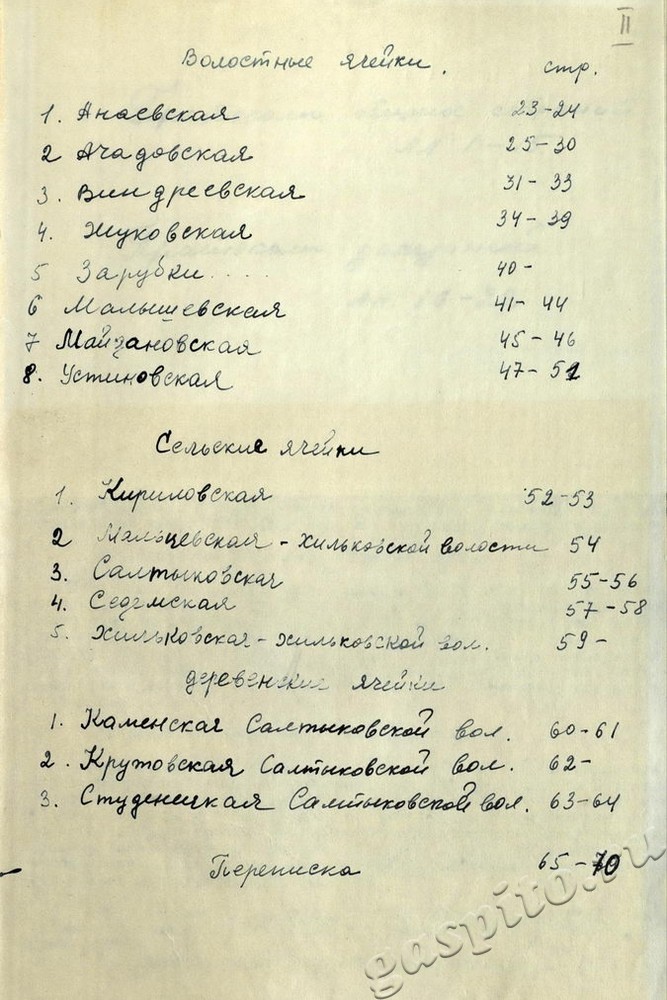 II
Волостные ячейки. стр.
1. Анаевская 23-24
2 Ачадовская 25-30
3. Виндреевская 31-33
4. Жуковская 34-39
5 Зарубки.... 40-
6 Малышевская 41-44
7 Майдановская 45-46
8. Устиновская 47-52
Сельские ячейки
1. Кириловская 52-53
2 Мальцевская - Хильковской волости 54
3. Салтыковская 55-56
4. Седемская 57-58
5. Хильковская - Хильковской вол. 59-
деревенские ячейки
1. Каменская Салтыковской вол. 60-61
2. Крутовская Салтыковской вол. 62-
3. Студенецкая Салтыковской вол. 63-64
Переписка 65-70
gaspito.ru